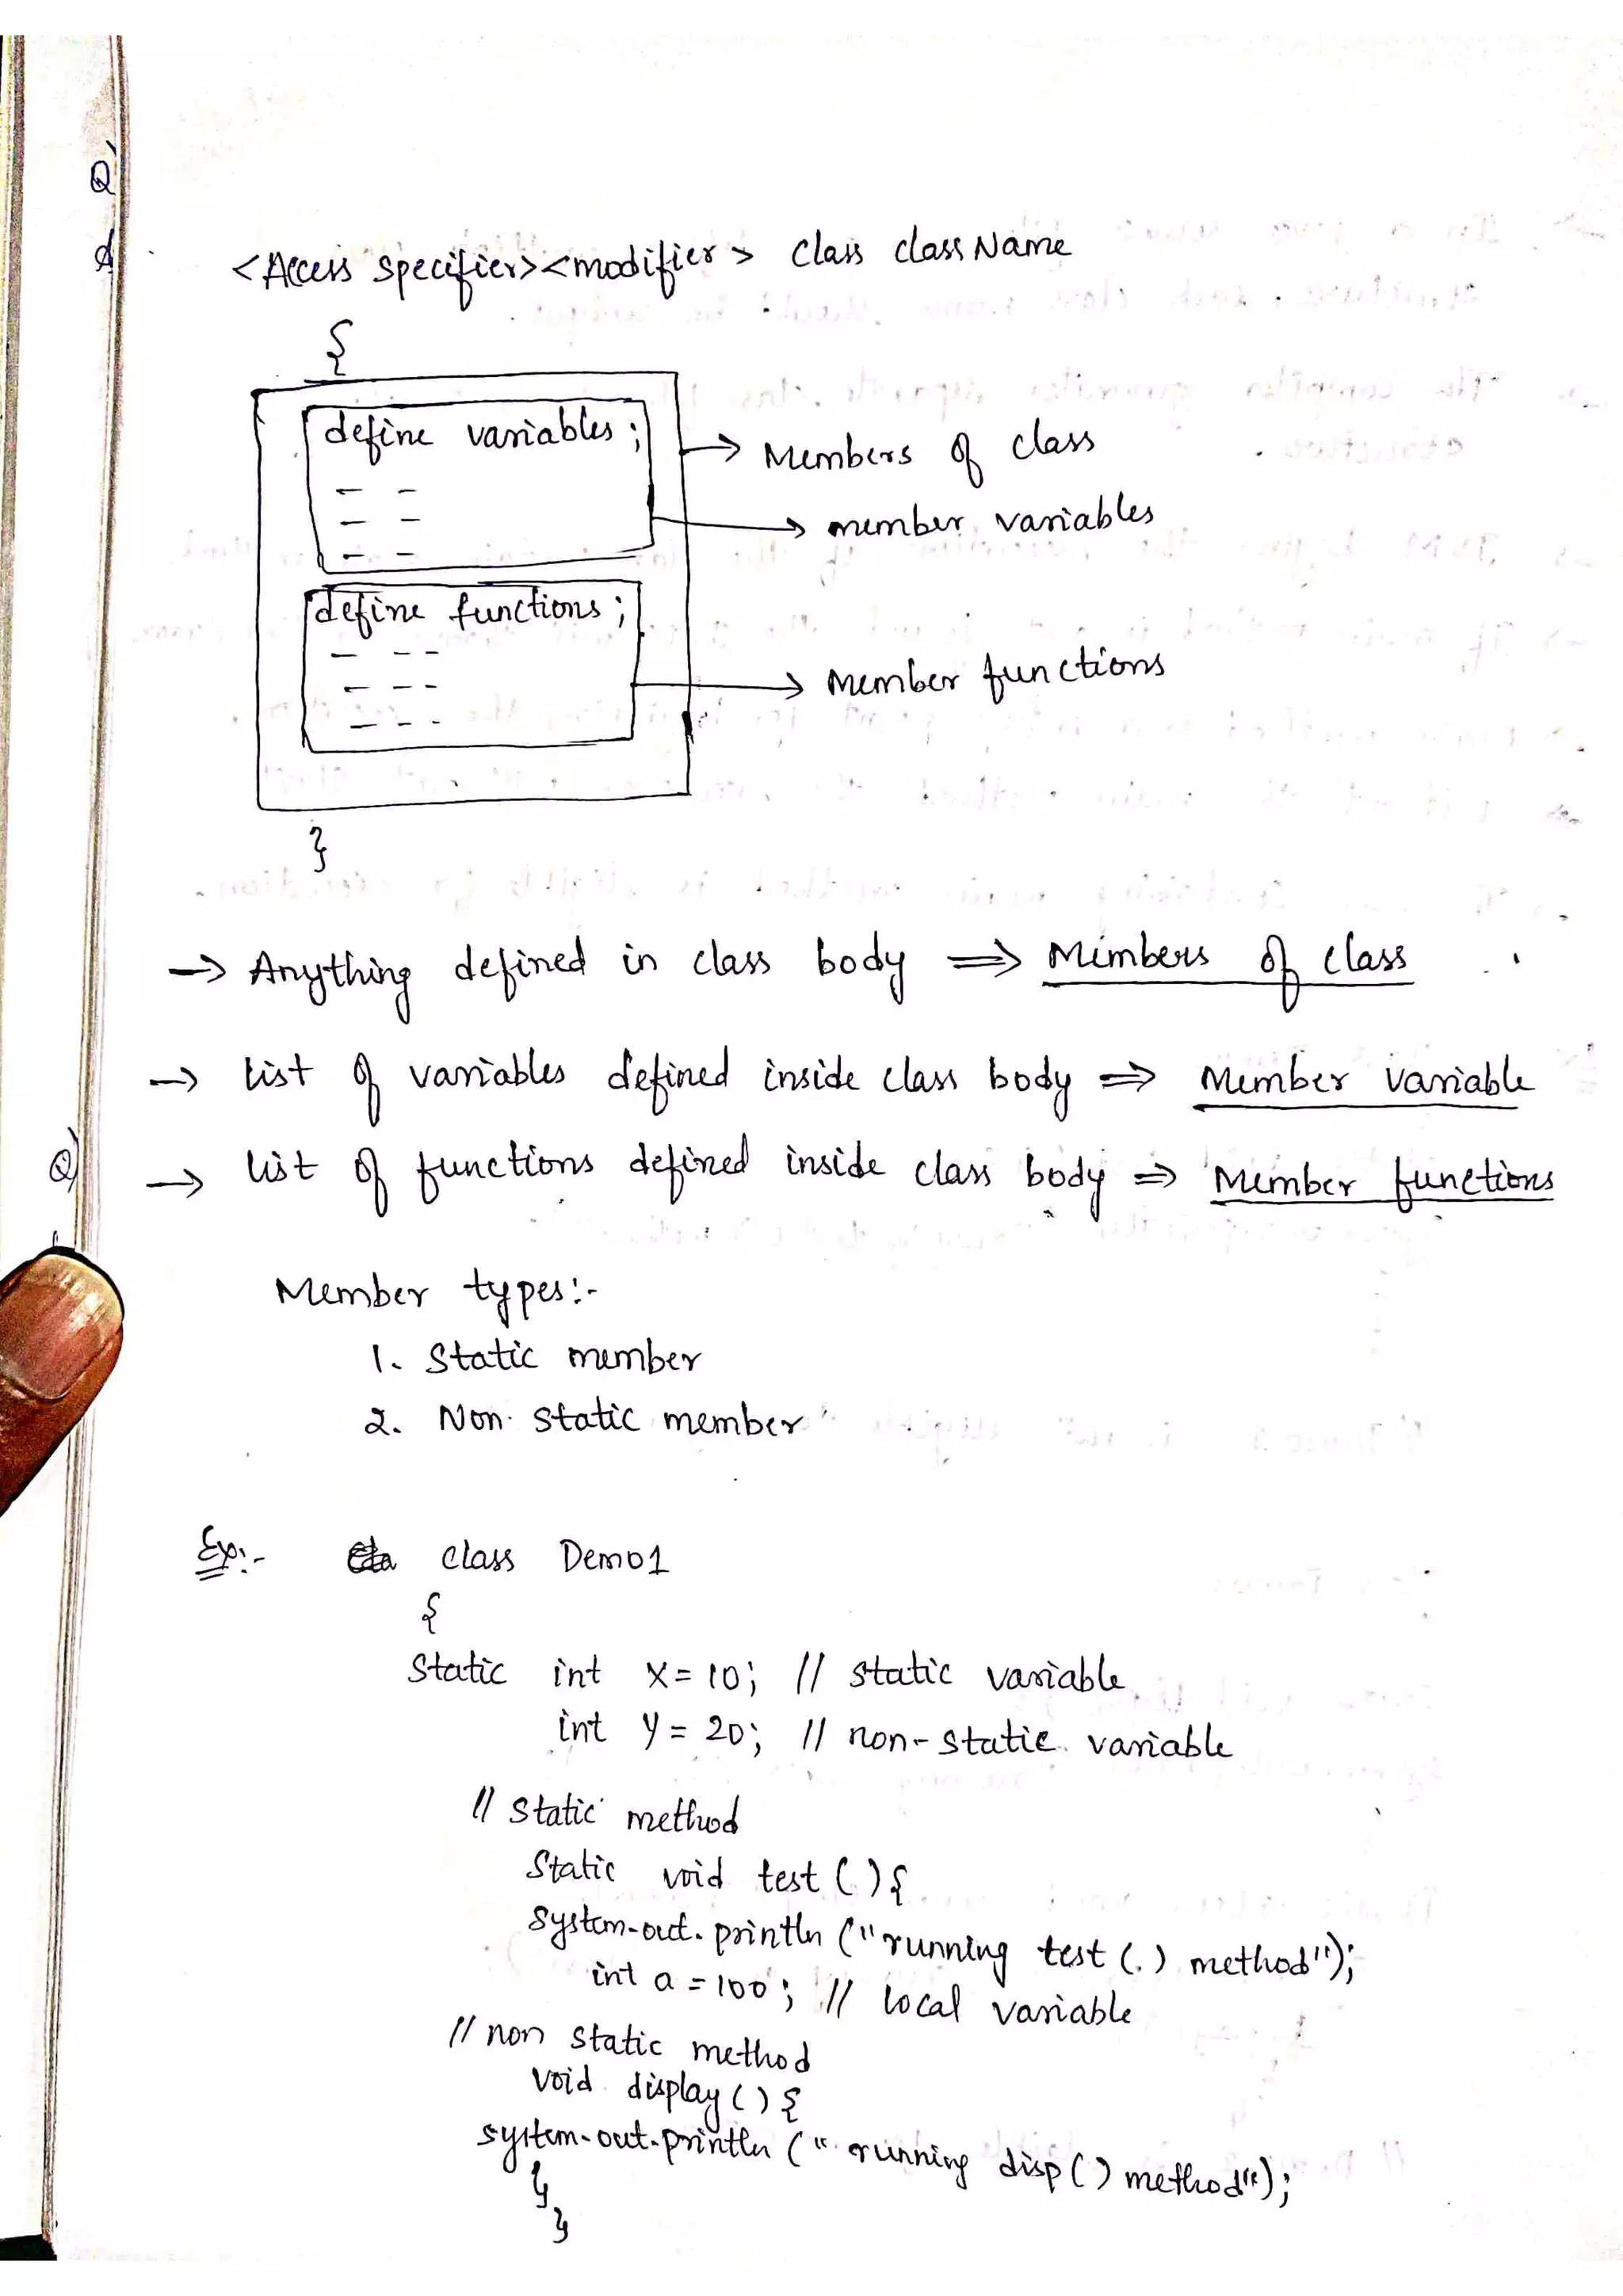 Q)
A
<Access specifier><modifier> class className
{
define variables;
- -
- -
- -
→ Members of class
→ member variables
define functions;
- - -
- - -
- - -
→ Member functions
}
→ Anything defined in class body ⇒ Members of class
→ List of variables defined inside class body ⇒ Member variable
Q)
→ List of functions defined inside class body ⇒ Member functions
Member types:-
1. Static member
2. Non-static member
Ex:- class Demo1
{
Static int x=10; // static variable
int y=20; // non-static variable
// static method
Static void test(){
System.out.println("running test(.) method");
int a=100; // local variable
// non static method
void display(){
system.out.println("running disp() method");
}
}